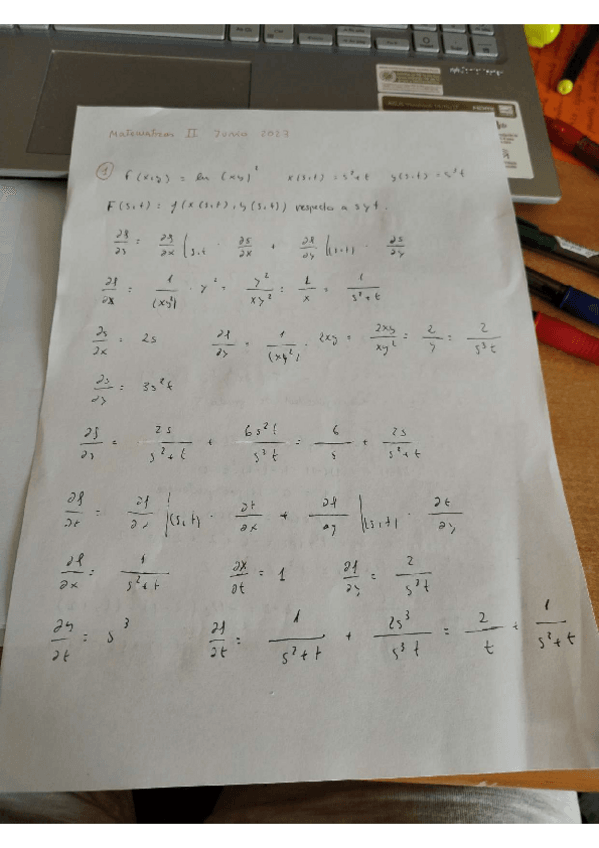 Matematicas II Junio 2023
① F(x,y) = ln (xy)² x(s,t) = s²+t y(s,t) = s³t
F(s,t) = f(x(s,t), y(s,t)) respecto a s y t.
∂f/∂s = ∂f/∂x |s,t · ∂s/∂x + ∂f/∂y |(s,t) · ∂s/∂y
∂f/∂x = 1/(xy²) · y² = y²/xy² = 1/x = 1/s²+t
∂s/∂x = 2s ∂f/∂y = 1/(xy²) · 2xy = 2xy/xy² = 2/y = 2/s³t
∂s/∂y = 3s²t
∂f/∂s = 2s/s²+t + 6s²t/s³t = 6/s + 2s/s²+t
∂f/∂t = ∂f/∂x |(s,t) · ∂t/∂x + ∂f/∂y |(s,t) · ∂t/∂y
∂f/∂x = 1/s²+t ∂x/∂t = 1 ∂f/∂y = 2/s³t
∂y/∂t = s³ ∂f/∂t = 1/s²+t + 2s³/s³t = 2/t + 1/s²+t